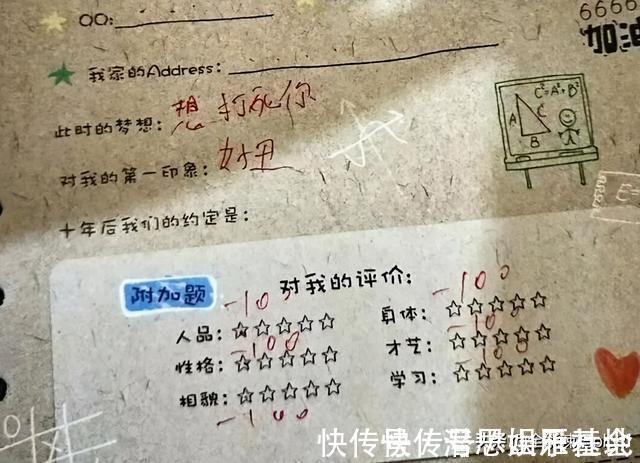 6666
加油
QQ:
我家的Address:
此时的梦想: 想打死你
C²=A²+B²
A C
B
对我的第一印象: 好丑
十年后我们的约定是:
附加题 对我的评价:
人品: -100
身体: -100
性格: -100
才艺: -100
相貌: -100
学习: -100
快传号